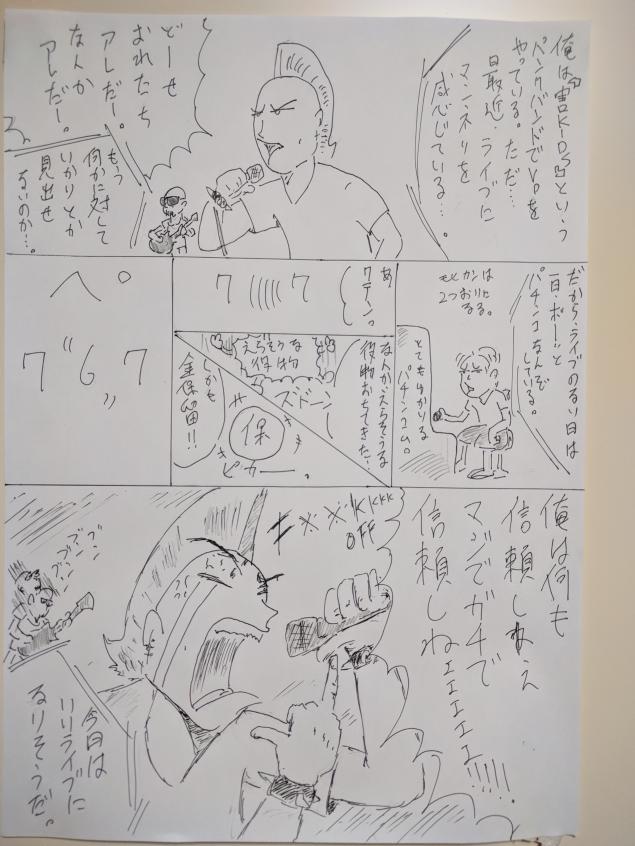 俺は『害KIDS』という
パンクバンドでVoを
やっている。ただ…
最近、ライブに
マンネリを
感じている…。
どーせ
おれたち
アレだー。
なんか
アレだー。
もう
何かに対して
いかりとか
見出せ
ないのか…。
だから、ライブのない日は
一日、ボーッと
パチンコなんぞ
している。
モヒカンは
2つおりに
なる。
とてもゆかいな
パチンコ台。
あ
クテンっ
7 ((((( 7
なんかえらそうな
役物おちてきた…
えらそうな
役物
ズドーン
しかも
金保留!!
保
ピカー。
ペ。
7 “6„ 7
俺は何も
信頼しねえ
マジでガチで
信頼しねェェェェェ!!!!!
KKKK
OFF
ブン
ブン
ブン
ブン
今日は
いいライブに
なりそうだ。